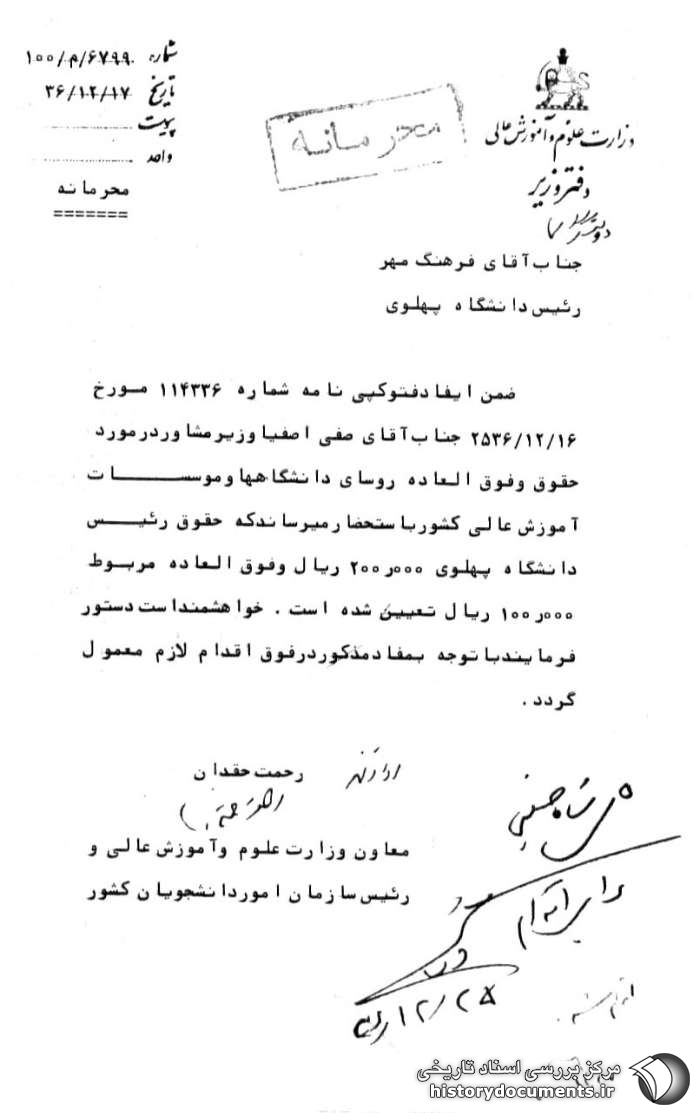 شماره ۶۷۹۹/م/۱۰۰
تاریخ ۳۶/۱۲/۱۷
پیوست
واحد
محرمانه
=======
محرمانه
وزارت علوم و آموزش عالی
دفتر وزیر
جناب آقای فرهنگ مهر
رئیس دانشگاه پهلوی
ضمن ایفاد فتوکپی نامه شماره ۱۱۴۳۳۶ مورخ
۲۵۳۶/۱۲/۱۶ جناب آقای صفی اصفیا وزیر مشاور در مورد
حقوق و فوق العاده روسای دانشگاهها و موسسات
آموزش عالی کشور باستحضار میرساند که حقوق رئیس
دانشگاه پهلوی ۲۰۰ر۰۰۰ ریال و فوق العاده مربوط
۱۰۰ر۰۰۰ ریال تعیین شده است . خواهشمند است دستور
فرمایند با توجه بمفاد مذکور در فوق اقدام لازم معمول
گردد .
ارادتمند
رحمت حقدان
معاون وزارت علوم و آموزش عالی و
رئیس سازمان امور دانشجویان کشور
برای اقدام
۱۲/۲۸
مرکز بررسی اسناد تاریخی
historydocuments.ir